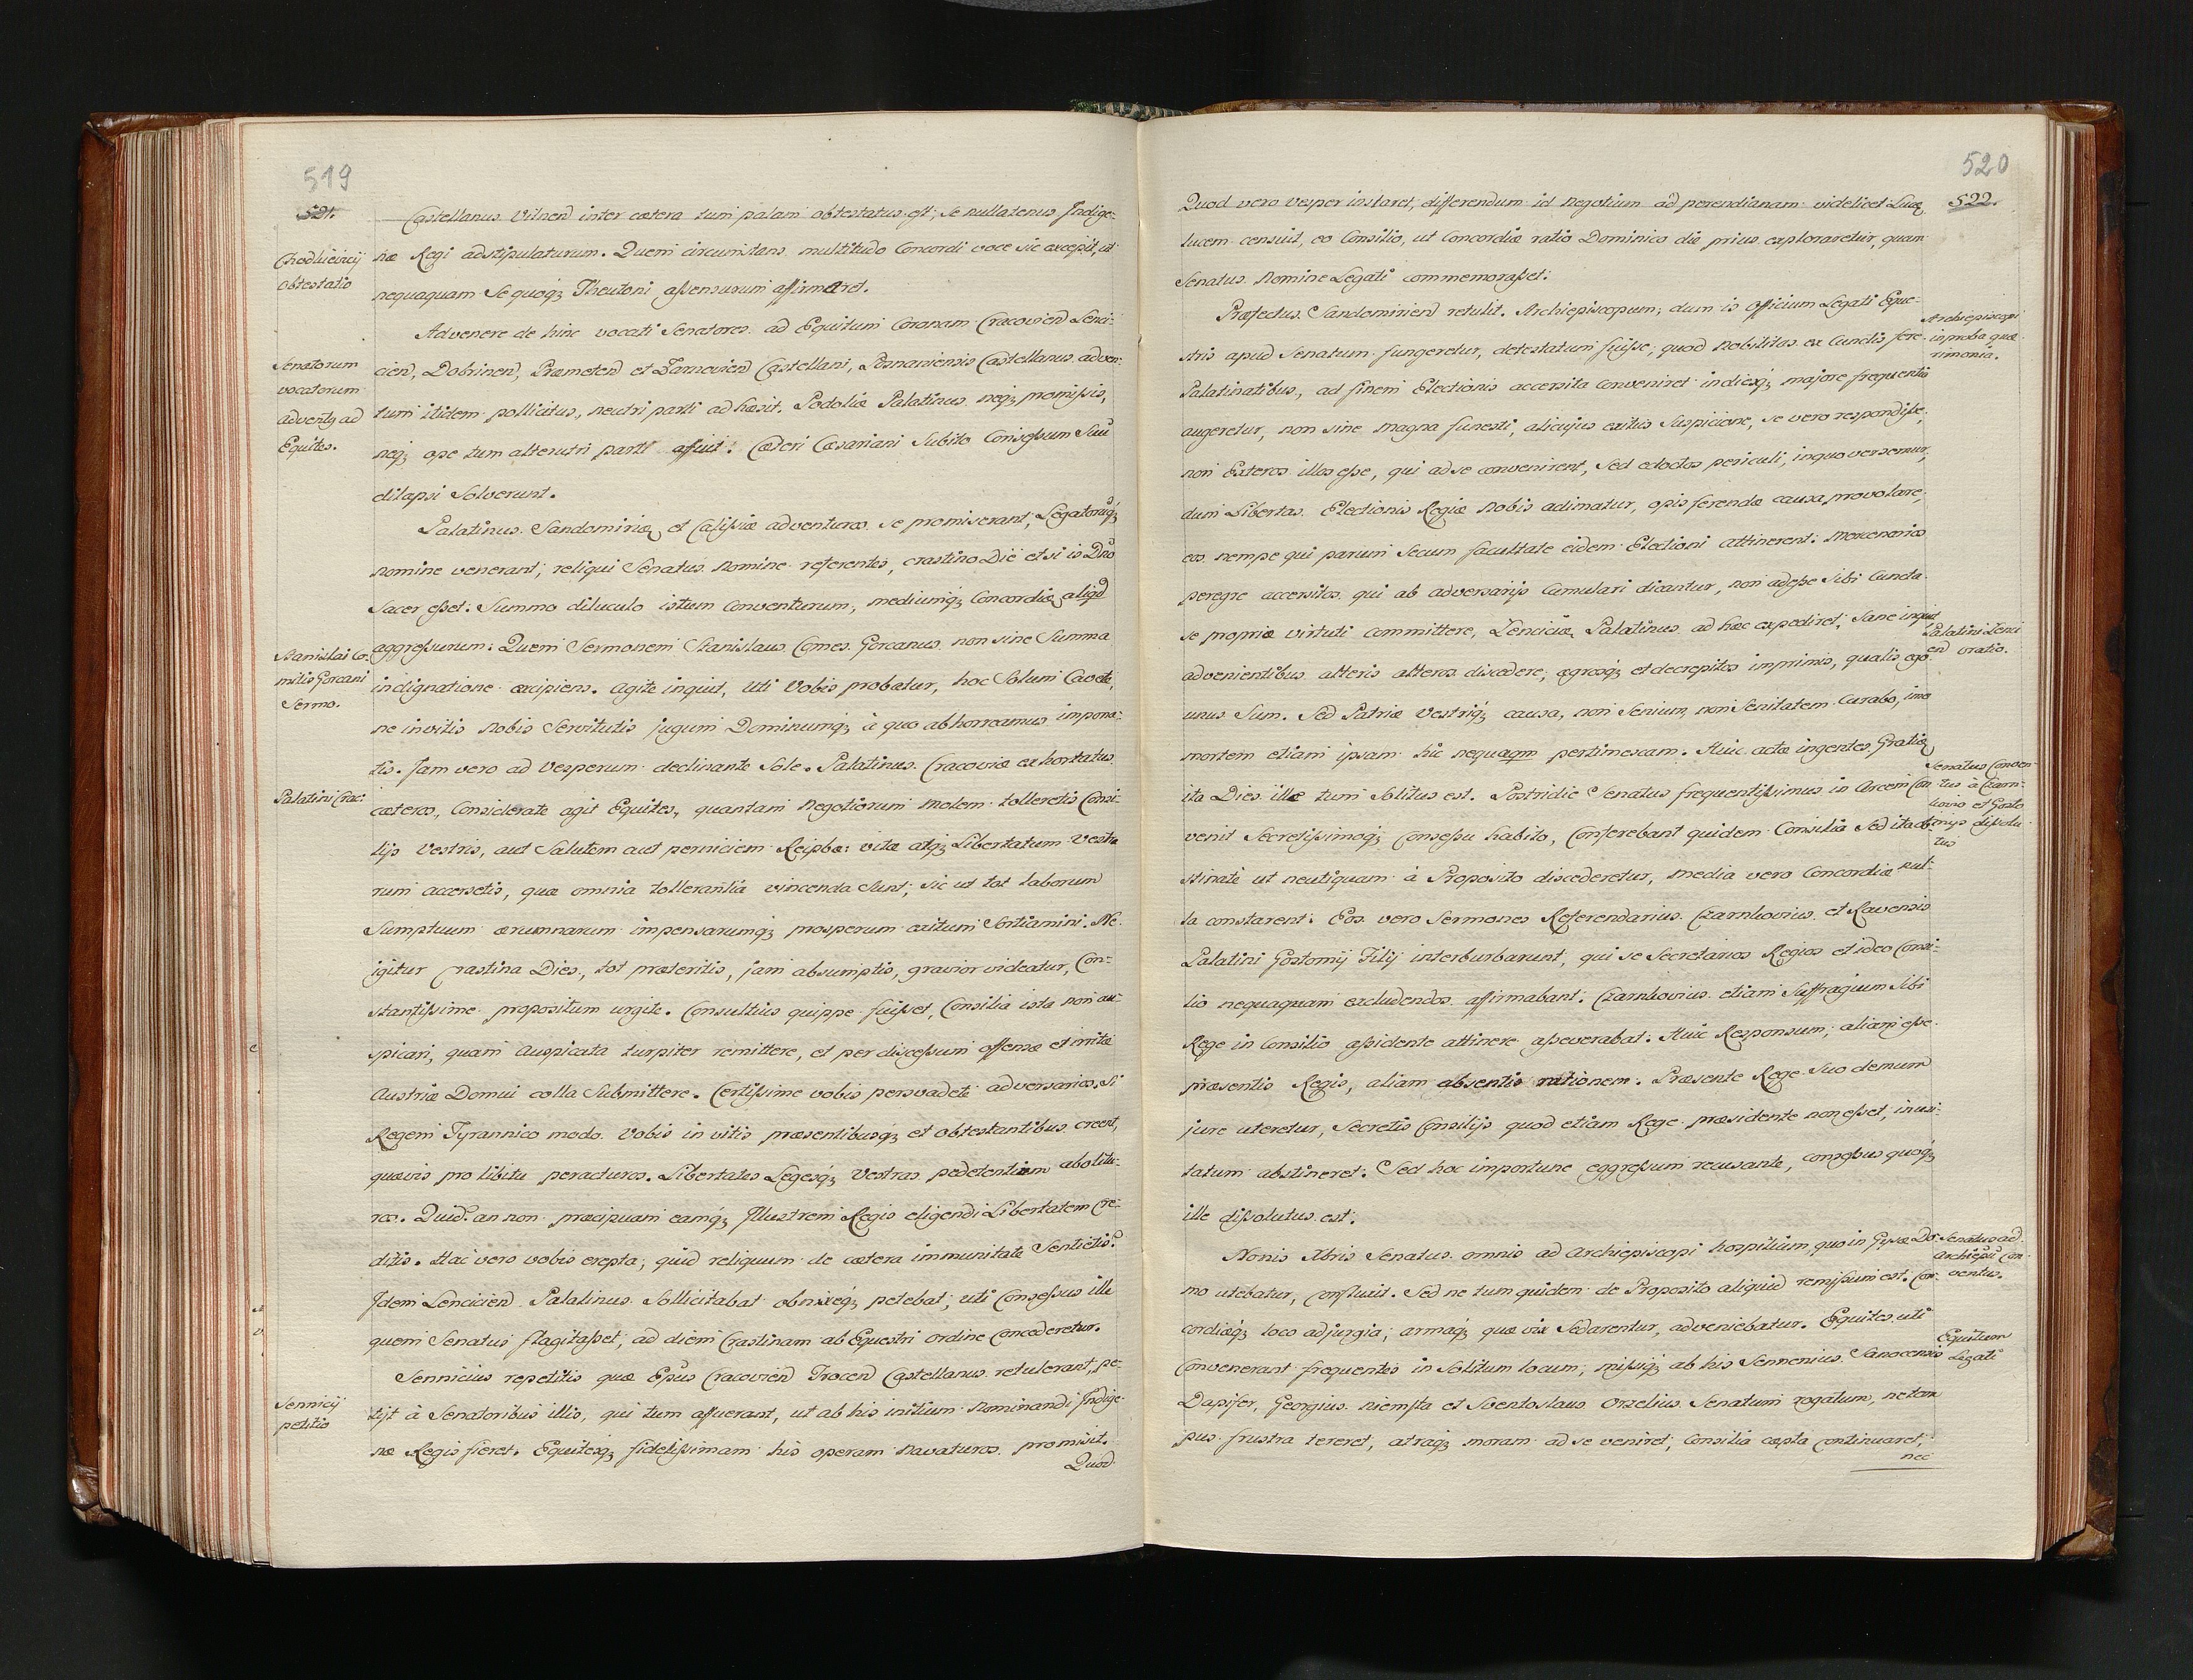 519
521.
Castellanus Vilnen inter cætera tum palam obtestatus est; se nullatenus Indige-
næ Regi adstipulaturum. Quem circumstans multitudo Concordi voce sic excepit, ut
nequaquam Se quoq; Theutoni assensurum affirmaret.
Chodkievicij
obtestatio
Advenere de hinc vocati Senatores ad Equitum Coronam Cracovien Lenci-
cien, Dobrinen, Præmeten et Zarnovien Castellani, Posnaniensis Castellanus adven-
tum itidem pollicitus, neutri parti adhæsit, Podoliæ Palatinus neq; promissis,
neq; ope tum alterutri parti affuit. Cæteri Cæsariani Subito Consessum Suũ
dilapsi Solverunt.
Senatorum
vocatorum
advent9 ad
Equites.
Palatinus Sandomiriæ et Calissiæ adventuros se promiserant; Legatorũq;
nomine venerant; reliqui Senatus nomine referentes, crastino Die etsi is Dño
sacer esset: Summo diluculo istum Conventurum, mediumq; Concordiæ aliqd
aggressurum: Quem Sermonem Stanislaus Comes Gorcanus non sine Summa
indignatione excipiens. Agite inquit, Uti Vobis probatur, hoc Solum Cavete,
ne invitis Nobis Servitutis jugum Dominumq; à quo abhorreamus impona-
tis. Jam vero ad Vesperum declinante Sole. Palatinus Cracoviæ exhortatus
cæteros, Considerate agit Equites, quantam Negotiorum molem tolleretis Consi-
lijs Vestris, aut Salutem aut perniciem Reipbæ: vitæ atq; Libertatum Vestra
rum accersetis, quæ omnia tollerantiâ vincenda Sunt; sic ut tot laborum
Sumptuum ærumnarum impensarumq; prosperum exitum Sortiamini. Ne
igitur Crastina Dies, tot præteritis, jam absumptis, gravior videatur, Con-
stantissime propositum urgite. Consultius quippe fuisset, Consilia ista non au-
spicari, quam Auspicata turpiter remittere, et per discessum offensæ et irritæ
Austriæ Domui colla Submittere. Certissime vobis persvadete adversarios, Si
Regem Tyrannico modo Vobis in vitis præsentibusq; et obtestantibus creent,
quævis pro libitu peracturos. Libertates Legesq; Vestras pedetentim abolitu-
ros. Quid? an non præcipuam eamq; Illustrem Regis eligendi Libertatem Cre-
ditis. Hac vero vobis erepta; quid reliquum de cætera immunitate Sentietis?
Idem Lencicien Palatinus Sollicitabat obnixeq; petebat; uti Consessus ille
quem Senatus flagitasset; ad diem Crastinam ab Equestri ordine Concederetur.
Stanislai Co-
mitis Gorcani
Sermo.
Palatini Crac:
Sennicius repetitis quæ Epũs Cracovien Trocen Castellanus retulerant, pe-
tijt à Senatoribus illis, qui tum affuerant, ut ab his initium Nominandi Indige-
næ Regis fieret. Equitesq; fidelissimam his operam navaturos promisit.
Sennicij
petitio
Quod
520
522.
Quod vero Vesper instaret, differendum id negotium ad perendianam videlicet Lunæ
lucem censuit, eo Consilio, ut Concordiæ ratio Dominico die prius exploraretur, quam
Senatus Nomine Legati commemorasset.
Præfectus Sandomirien retulit. Archiepiscopum; dum is officium Legati Eque-
stris apud Senatum fungeretur, detestatum fuisse; quod Nobilitas ex Cunctis fere
Palatinatibus, ad finem Electionis accersita Conveniret indiesq; majore frequentia
augeretur, non sine magna funesti, alicujus exitus Suspicione, se vero respondisse,
non Exteros illos esse, qui ad se convenirent, Sed edoctos periculi, in quo versemur,
dum Libertas Electionis Regiæ Nobis adimatur, opis ferendæ causa provolare;
eos nempe qui parum Secum facultate eidem Electioni attinerent: Mercenarios
peregre accersitos qui ab adversarijs Cumulari dicantur, non adesse Sibi Cuncta
se propriæ virtuti committere, Lenciciæ Palatinus ad hæc expediret; Sane inquit
advenientibus alteris alteros discedere; ægrosq; et decrepitos imprimis, qualis ego
unus Sum. Sed Patriæ Vestriq; causa, non Senium, non Senitatem Curabo, imo
mortem etiam ipsam hic nequaqm pertimescam. Huic actæ ingentes Gratiæ
ita Dies illæ tum Solitus est. Postridie Senatus frequentissimus in Arcem Con
venit Secretissimoq; Consessu habito, Conferebant quidem Consilia Sed ita ob-
stinate ut neutiquam à Proposito discederetur, media vero Concordiæ nul-
la constarent: Eos vero Sermones Referendarius Czarnkovius et Ravensis
Palatini Gostomij Filij interburbarunt, qui se Secretarios Regios et ideo Consi-
lio nequaquam excludendos affirmabant. Czarnkovius etiam Suffragium Sibi
Rege in Consilio assidente attinere asseverabat: Huic Responsum; aliam esse
præsentis Regis, aliam absentis rationem. Præsente Rege Suo demum
jure uteretur, Secretis Consilijs quod etiam Rege præsidente non esset, inusi-
tatum abstineret. Sed hoc importune eggressum recusante, consessus quoq;
ille dissolutus est.
Archiepiscopi
improba quæ
rimonia.
Palatini Lenci
en oratio.
Senatus Conven-
tus à Czarn-
kovio et Gosto
mijs dissolu-
tus
Nonis Xbris Senatus omnis ad Archiepiscopi hospitium, quo in Gysæ Do-
mo utebatur, confluxit. Sed ne tum quidem de Proposito aliquid remissum est. Con-
cordiæq; loco adjurgia; armaq; quæ vix Sedarentur, adveniebatur. Equites uti
Convenerant frequentes in Solitum locum; missiq; ab his Sennenius Sanocensis
Dapifer, Georgius Niemsta et Sventoslaus Orzelius Senatum rogatum, ne tem
pus frustra tereret, atraq; moram ad se veniret; Consilia cæpta continuaret,
Senatus ad
Archiepũ Con-
ventus.
Equitum
Legati
nec